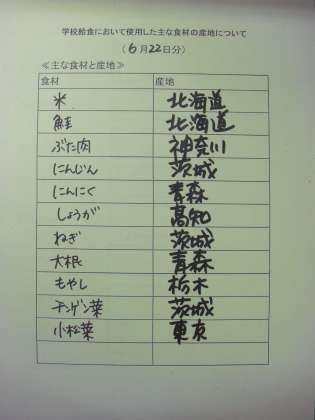 学校給食において使用した主な食材の産地について
(6月22日分)
≪主な食材と産地≫
食材 産地
米 北海道
鮭 北海道
ぶた肉 神奈川
にんじん 茨城
にんにく 青森
しょうが 高知
ねぎ 茨城
大根 青森
もやし 栃木
チンゲン菜 茨城
小松菜 東京